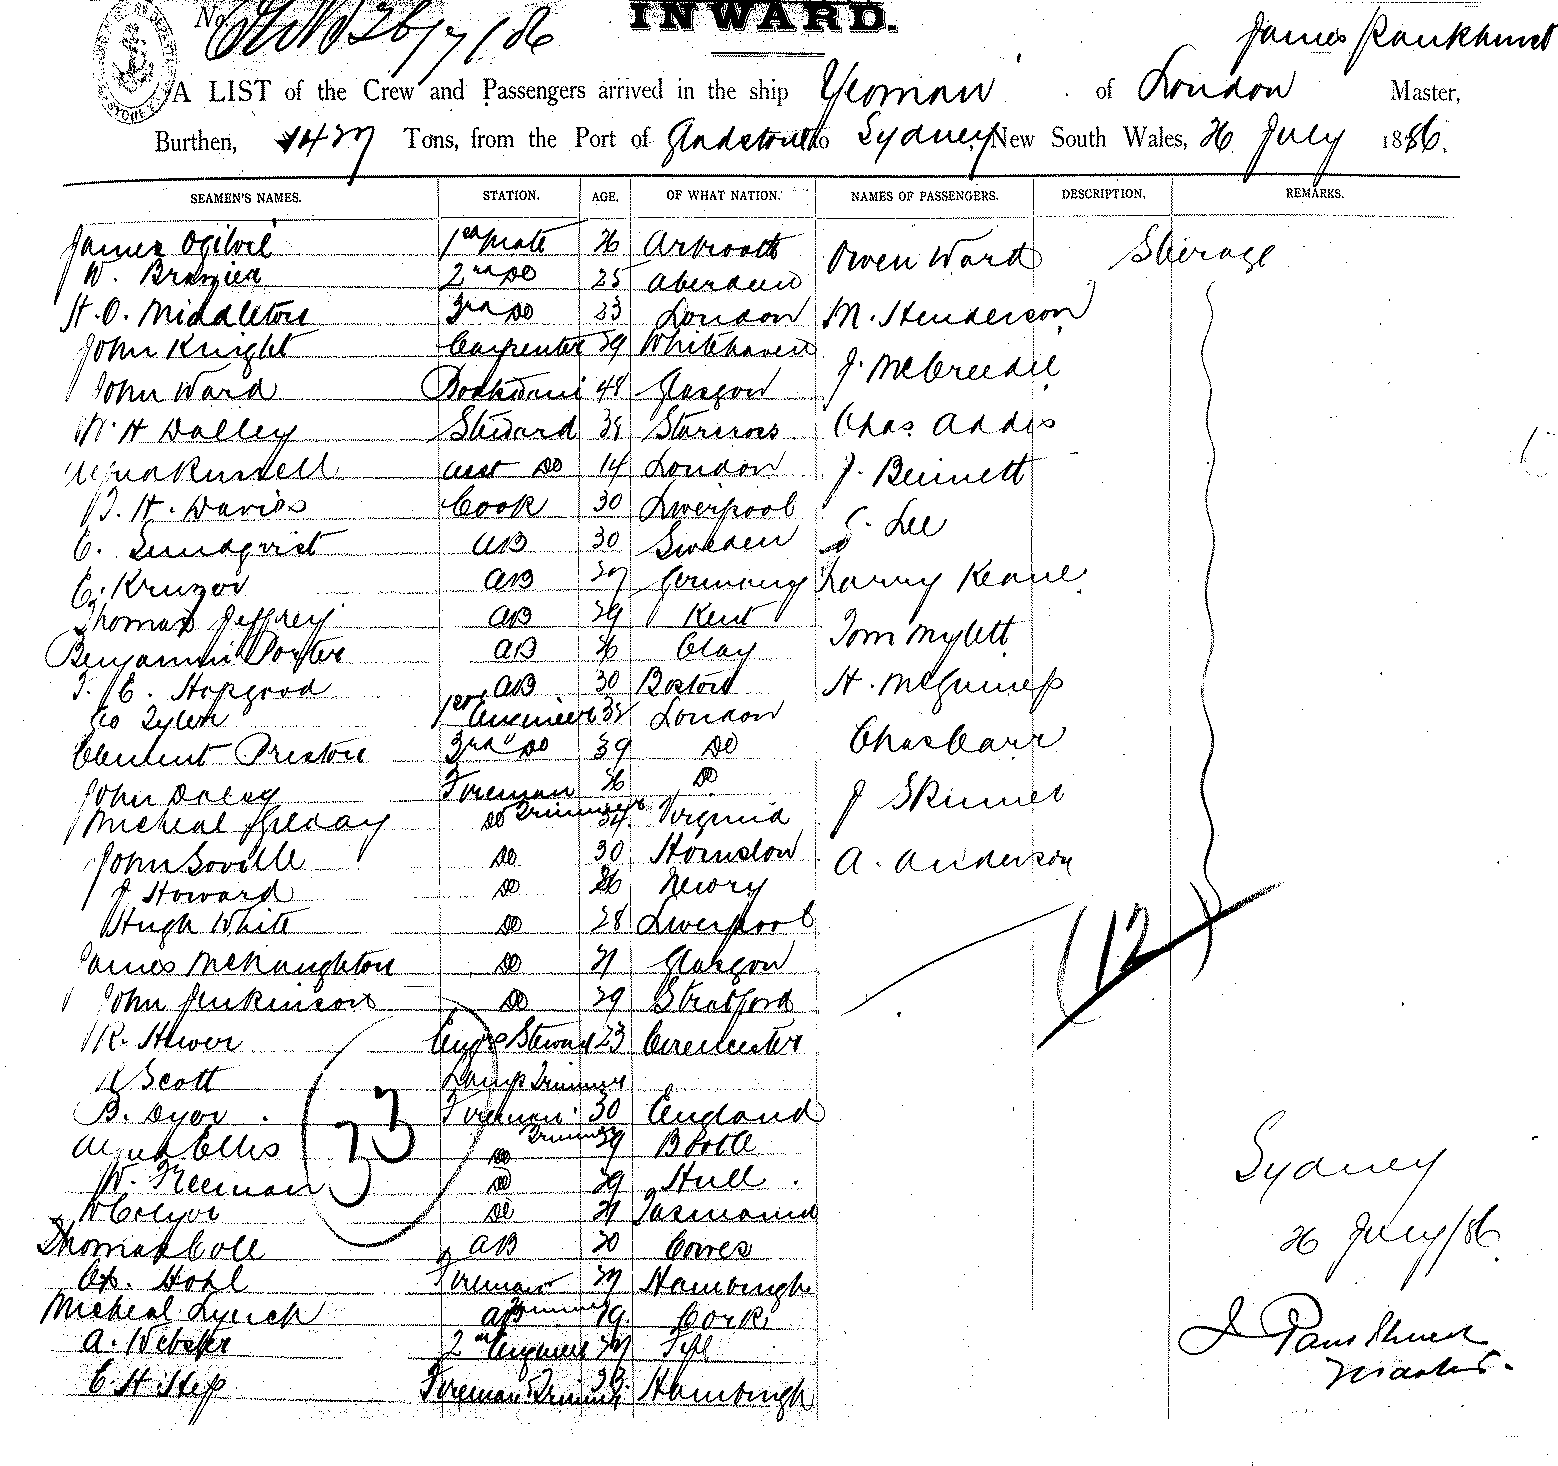 No.
26/7/86
INWARD.
James Pankhurst
A LIST of the Crew and Passengers arrived in the ship Yeoman of London Master,
Burthen, 1437 Tons, from the Port of Gladstone to Sydney New South Wales, 26 July 1886.
SEAMEN'S NAMES. STATION. AGE. OF WHAT NATION. NAMES OF PASSENGERS. DESCRIPTION. REMARKS.
James Ogilvie 1st Mate 26 Arbroath Owen Ward Steerage
W. Brazier 2nd Do 25 Aberdeen
H. O. Middleton 3rd Do 23 London M. Henderson
John Knight Carpenter 29 Whitehaven J. McCreedie
John Ward Boatswain 48 Glasgow
W. H Dalley Steward 38 Starcross Chas Addis
Russell Asst Do 14 London J. Bennett
J. H. Davies Cook 30 Liverpool
C. Lundqvist AB 30 Sweden S. Lee
C. Kruger AB 27 Germany Larry Keane
Thomas Jeffrey AB 29 Kent
Benjamin Porter AB 26 Clay Tom Mylett
T. E. Hopgood AB 30 Boston H. McGuiness
Geo Tyler 1st Engineer 38 London
Clement Preston 3rd " Do 39 Do Chas Carr
John Daley Fireman 26 Do J Skinner
Micheal Gilday Do Trimmer 34 Virginia
John Soville Do 30 Hornsdon A. Anderson
J Howard Do 26 Newry
Hugh White Do 28 Liverpool (12)
James McNaughton Do 21 Glasgow
John Jenkinson Do 29 Stratford
R. Hewer Engrs Steward 23 Cirencester
R Scott Lamp Trimmer
B. Dyer Fireman 30 England
33
Ellis Do Trimmer 29 Bootle
W. Freeman Do 29 Hull
W Colyer Do 21 Tasmania
Thomas Cole AB 20 Cowes
Hohl Fireman 27 Hamburgh
Micheal Lynch Trimmer 19 Cork
A. Webster 2nd Engineer 27 Fife
E. H. Step Fireman Trimmer Hamburgh
Sydney
26 July/86
J Pankhurst
Master